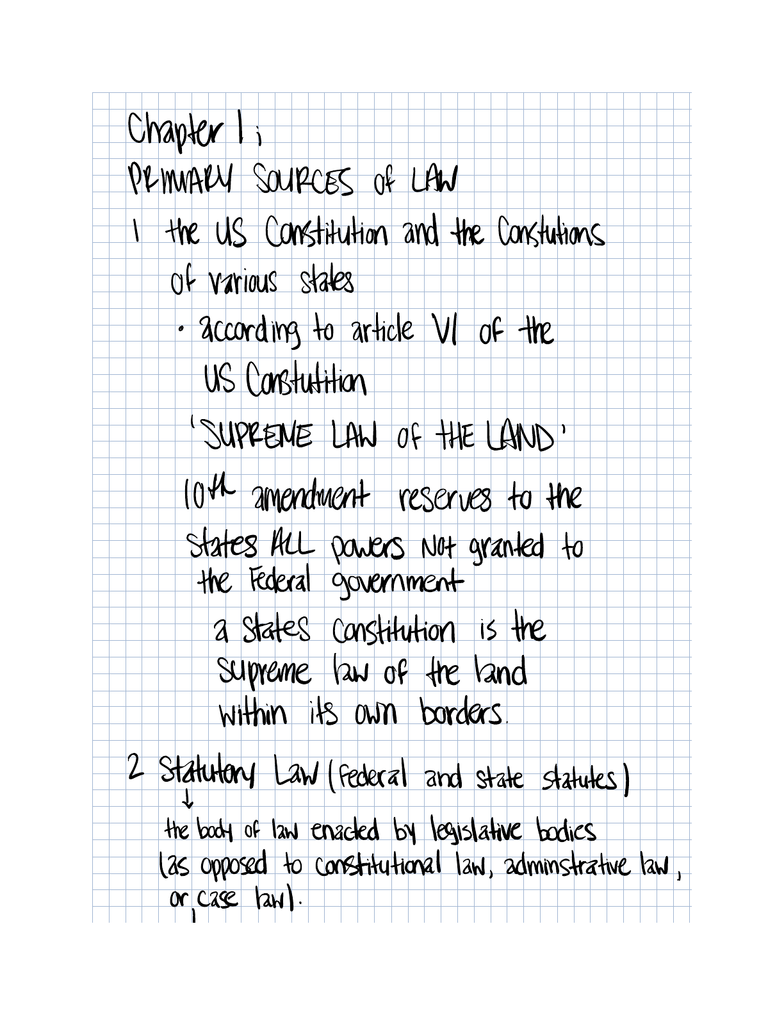 Chapter 1;
PRIMARY SOURCES of LAW
1 the US Constitution and the Constutions
of various states
• according to article VI of the
US Constutition
'SUPREME LAW of THE LAND'
10th amendment reserves to the
States ALL powers Not granted to
the Federal government
a states constitution is the
supreme law of the land
within its own borders.
2 Statutory Law (Federal and state statutes)
↓
the body of law enacted by legislative bodies
(as opposed to constitutional law, adminstrative law,
or case law).